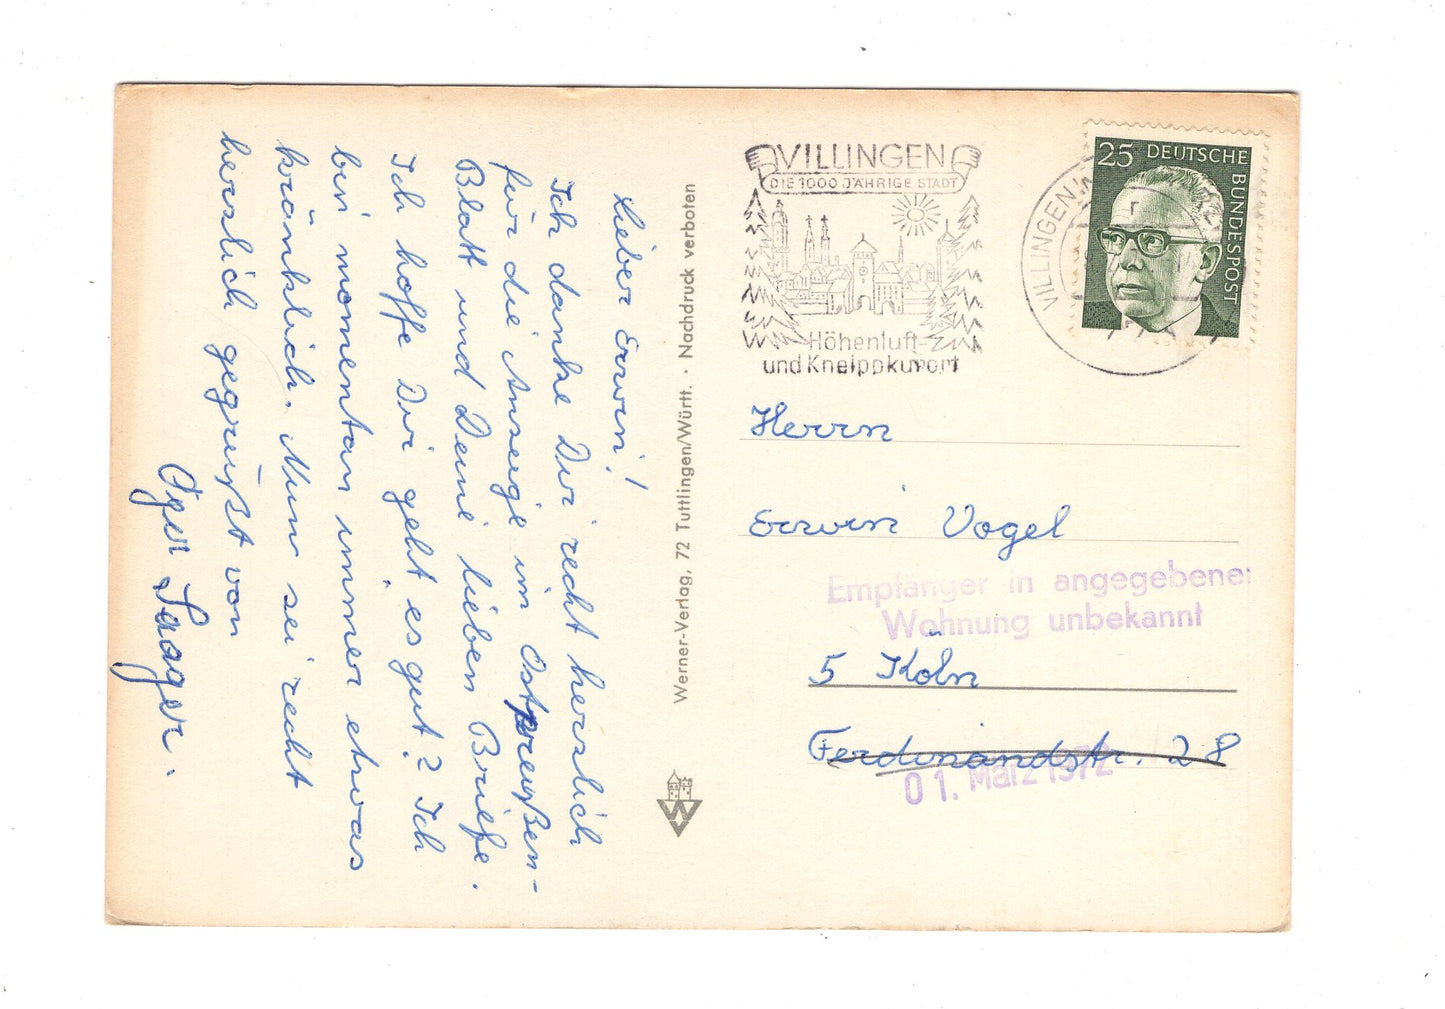 Lieber Erwin!
Ich danke Dir recht herzlich
für die Anzeige im Ostpreußen-
Blatt und Deine lieben Briefe.
Ich hoffe Dir geht es gut? Ich
bin momentan immer etwas
kränklich. Nun sei recht
herzlich gegrüßt von
Saager.
Werner-Verlag, 72 Tuttlingen/Württ. · Nachdruck verboten
W
VILLINGEN
DIE 1000 JÄHRIGE STADT
Höhenluft-
und Kneippkurort
VILLINGEN
25 DEUTSCHE BUNDESPOST
Herrn
Erwin Vogel
Empfänger in angegebener
Wohnung unbekannt
5 Köln
Ferdinandstr. 28
01. März 1972